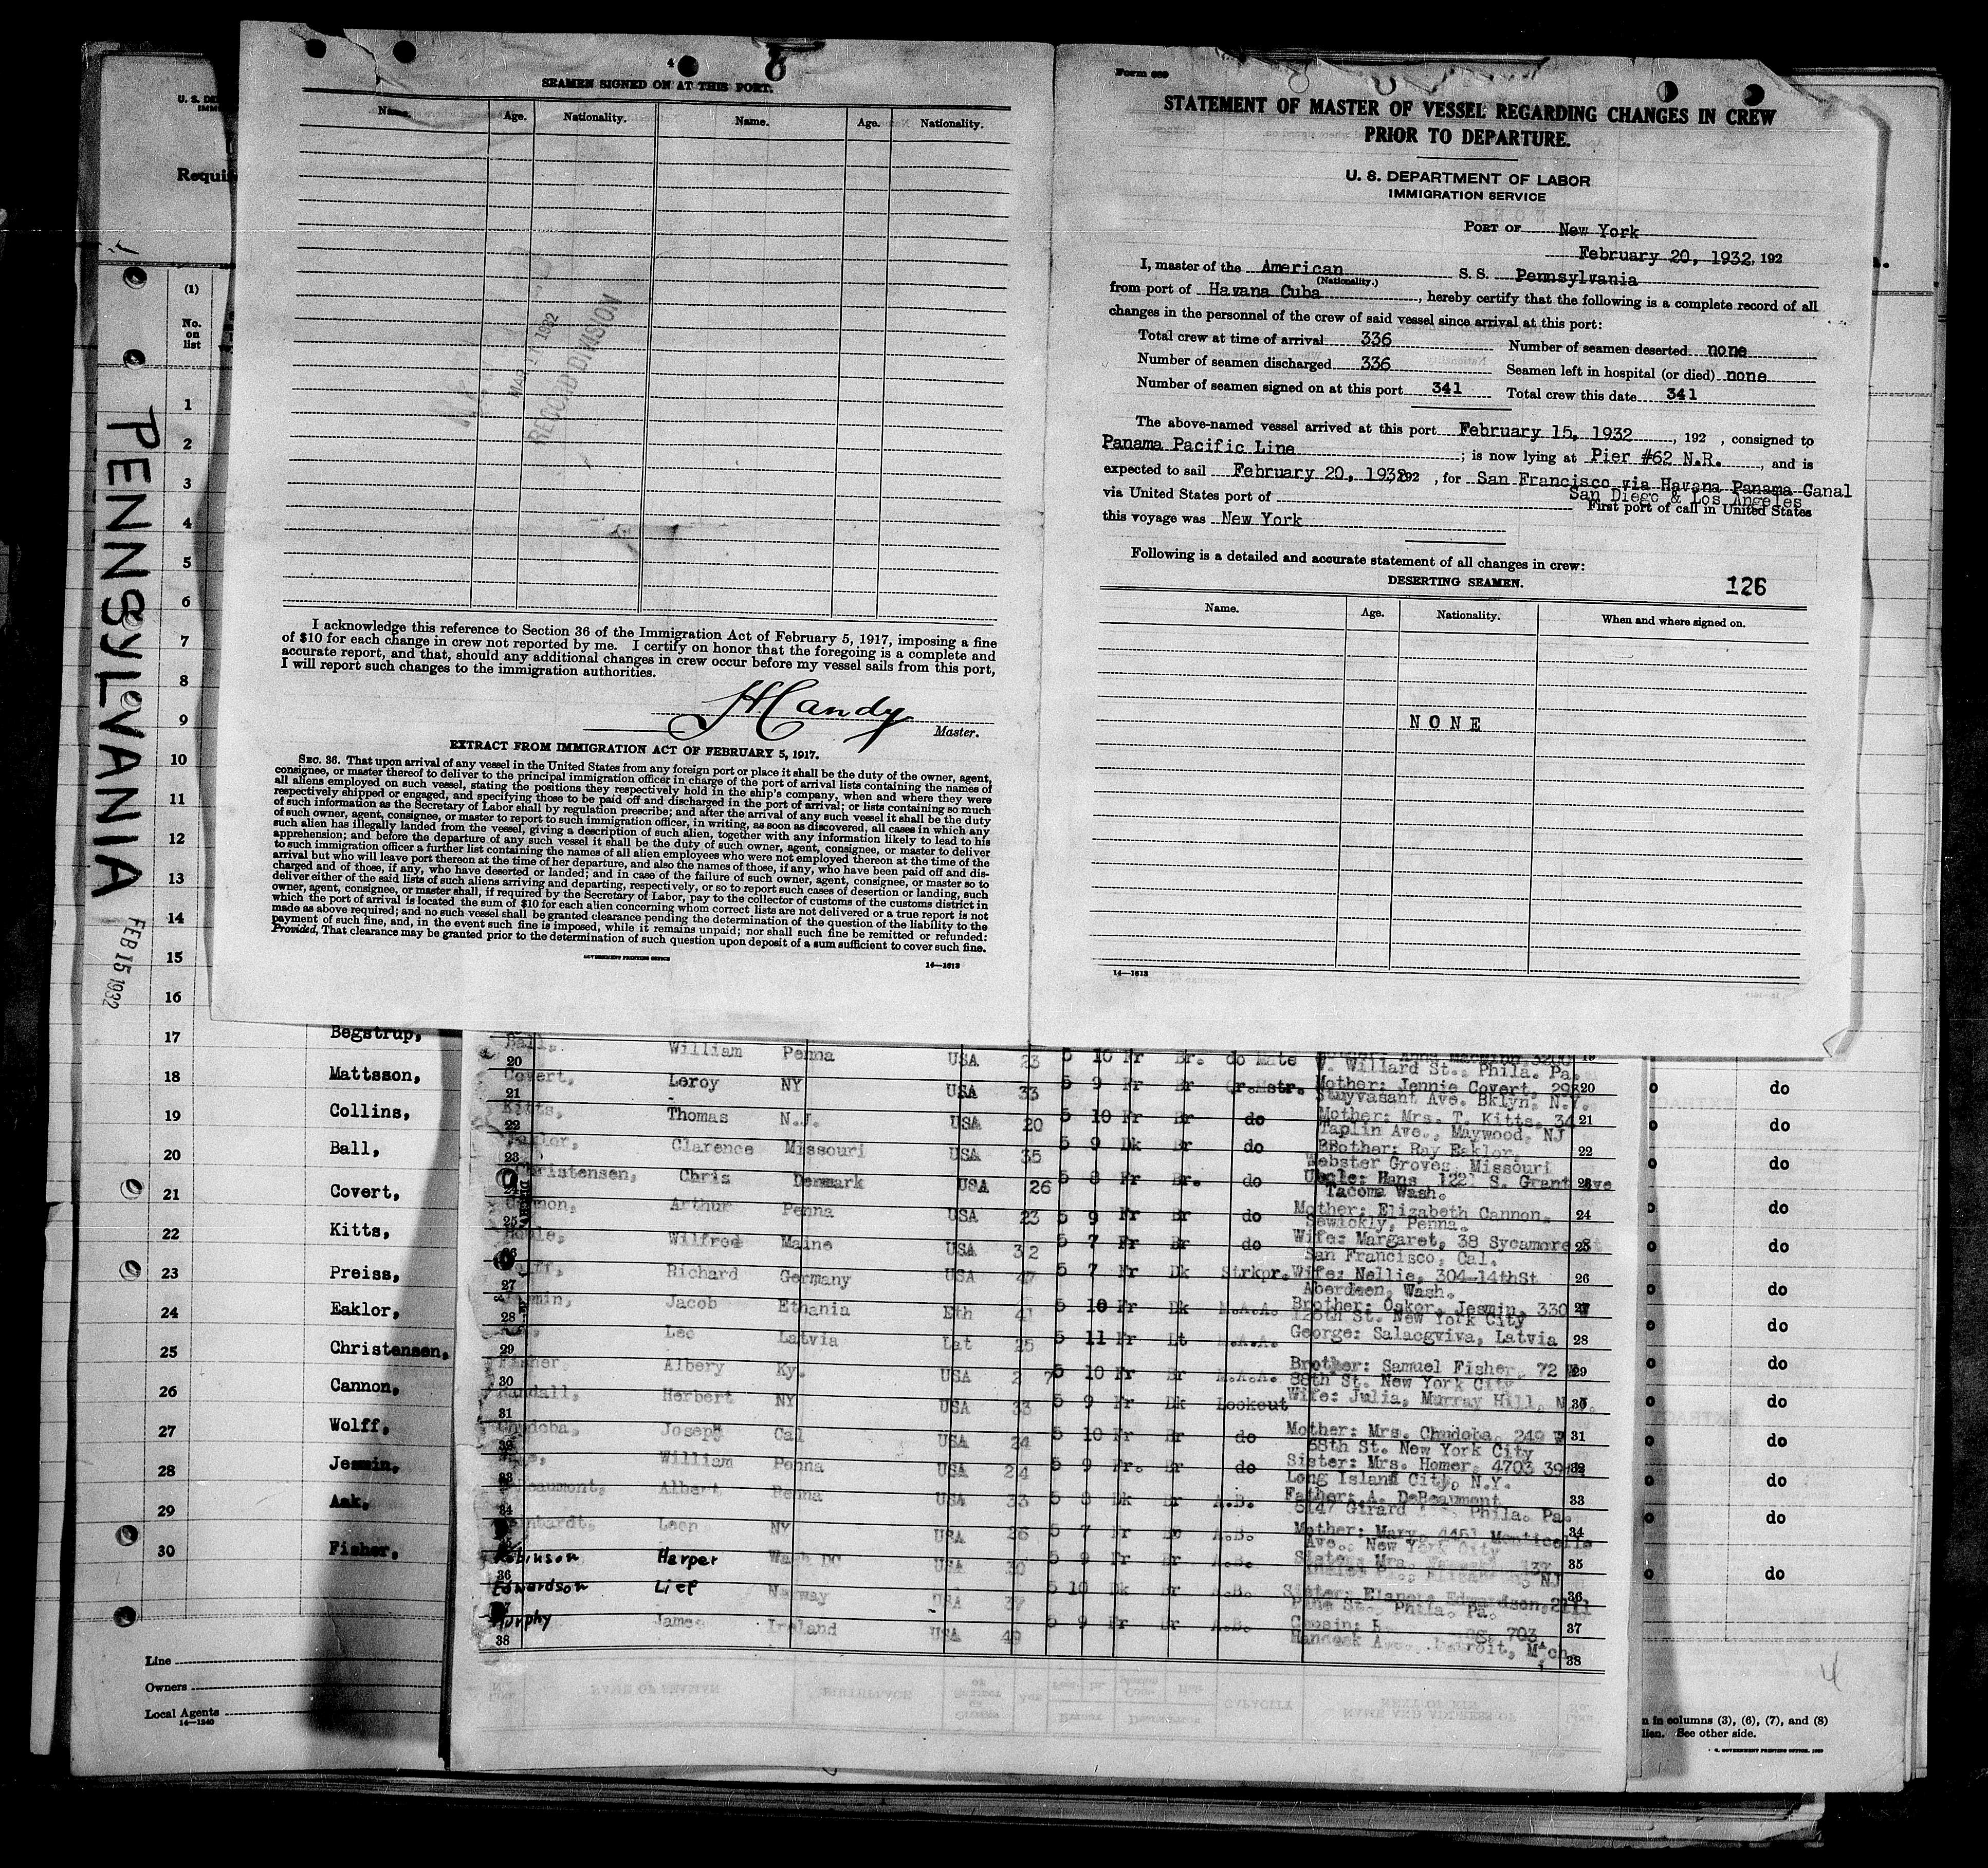 4
SEAMEN SIGNED ON AT THIS PORT.
Name. Age. Nationality. Name. Age. Nationality.
MAR 1932
RECORD DIVISION
I acknowledge this reference to Section 36 of the Immigration Act of February 5, 1917, imposing a fine
of $10 for each change in crew not reported by me. I certify on honor that the foregoing is a complete and
accurate report, and that, should any additional changes in crew occur before my vessel sails from this port,
I will report such changes to the immigration authorities.
H Candy
Master.
EXTRACT FROM IMMIGRATION ACT OF FEBRUARY 5, 1917.
SEC. 36. That upon arrival of any vessel in the United States from any foreign port or place it shall be the duty of the owner, agent,
consignee, or master thereof to deliver to the principal immigration officer in charge of the port of arrival lists containing the names of
all aliens employed on such vessel, stating the positions they respectively hold in the ship's company, when and where they were
respectively shipped or engaged, and specifying those to be paid off and discharged in the port of arrival; or lists containing so much
of such information as the Secretary of Labor shall by regulation prescribe; and after the arrival of any such vessel it shall be the duty
of such owner, agent, consignee, or master to report to such immigration officer, in writing, as soon as discovered, all cases in which any
such alien has illegally landed from the vessel, giving a description of such alien, together with any information likely to lead to his
apprehension; and before the departure of any such vessel it shall be the duty of such owner, agent, consignee, or master to deliver
to such immigration officer a further list containing the names of all alien employees who were not employed thereon at the time of the
arrival but who will leave port thereon at the time of her departure, and also the names of those, if any, who have been paid off and dis-
charged and of those, if any, who have deserted or landed; and in case of the failure of such owner, agent, consignee, or master so to
deliver either of the said lists of such aliens arriving and departing, respectively, or so to report such cases of desertion or landing, such
owner, agent, consignee, or master shall, if required by the Secretary of Labor, pay to the collector of customs of the customs district in
which the port of arrival is located the sum of $10 for each alien concerning whom correct lists are not delivered or a true report is not
made as above required; and no such vessel shall be granted clearance pending the determination of the question of the liability to the
payment of such fine, and, in the event such fine is imposed, while it remains unpaid; nor shall such fine be remitted or refunded:
Provided, That clearance may be granted prior to the determination of such question upon deposit of a sum sufficient to cover such fine.
GOVERNMENT PRINTING OFFICE
14—1613
Form 689
STATEMENT OF MASTER OF VESSEL REGARDING CHANGES IN CREW
PRIOR TO DEPARTURE.
U. S. DEPARTMENT OF LABOR
IMMIGRATION SERVICE
PORT OF New York
February 20, 1932, 192
I, master of the American S. S. Pennsylvania
(Nationality.)
from port of Havana Cuba, hereby certify that the following is a complete record of all
changes in the personnel of the crew of said vessel since arrival at this port:
Total crew at time of arrival 336 Number of seamen deserted none
Number of seamen discharged 336 Seamen left in hospital (or died) none
Number of seamen signed on at this port 341 Total crew this date 341
The above-named vessel arrived at this port February 15, 1932, 192 , consigned to
Panama Pacific Line; is now lying at Pier #62 N.R., and is
expected to sail February 20, 1932 192 , for San Francisco via Havana Panama Canal
San Diego & Los Angeles
via United States port of First port of call in United States
this voyage was New York
Following is a detailed and accurate statement of all changes in crew:
DESERTING SEAMEN. 126
Name. Age. Nationality. When and where signed on.
NONE
14—1613
PENNSYLVANIA
FEB 15 1932
Requi
(1)
No.
on
list
1
2
3
4
5
6
7
8
9
10
11
12
13
14
15
16
17 Begstrup,
18 Mattsson,
19 Collins,
20 Ball,
21 Covert,
22 Kitts,
23 Preiss,
24 Eaklor,
25 Christensen,
26 Cannon,
27 Wolff,
28 Jesmin,
29 Aak,
30 Fisher,
Line
Owners
Local Agents
14—1240
20 Ball, William Penna USA 23 5 10 Fr Br. do Mate
W. Willard St., Phila. Pa.
21 Covert, Leroy NY USA 33 5 9 Fr Br Qr.Mstr. Mother: Jennie Covert, 20
Stuyvasant Ave. Bklyn, N.Y.
22 Kitts, Thomas N.J. USA 20 5 10 Fr Br do Mother: Mrs. T. Kitts, 34 21
Taplin Ave., Maywood, NJ
23 Clarence Missouri USA 35 5 9 Dk Br do Brother: Ray Eaklor, 22
Webster Groves, Missouri
Christensen, Chris Denmark USA 26 5 8 Fr Br. do Uncle: Hans 1221 S. Grant Ave
Tacoma Wash.
25 Cannon, Arthur Penna USA 23 5 9 Fr Br do Mother: Elizabeth Cannon, 24
Sewickly, Penna.
Wilfred Maine USA 32 5 7 Fr Br do Wife: Margaret, 38 Sycamore St
San Francisco, Cal.
27 Richard Germany USA 47 5 7 Fr Dk Strkpr. Wife: Nellie, 304-14thSt 26
Aberdeen, Wash.
28 Jacob Ethania Eth 41 5 10 Fr Dk M.A.A. Brother: Oskor, Jesmin, 330 W
128th St. New York City
29 Leo Latvia Lat 25 5 11 Fr Lt M.A.A. George: Salacgviva, Latvia 28
30 Fisher, Albery Ky. USA 27 5 10 Fr Br M.A.A. Brother: Samuel Fisher, 72 W 29
88th St. New York City
31 Randall, Herbert NY USA 33 5 9 Fr Dk Lookout Wife: Julia, Murray Hill, N.J. 30
Chudoba, Joseph Cal USA 24 5 10 Fr Br do Mother: Mrs. Chudoba, 249 W 31
68th St. New York City
33 William Penna USA 24 5 9 Fr. Br do Sister: Mrs. Homer, 4703 39th
Long Island City, N.Y.
34 Albert Penna USA 33 5 8 Dk Br A.B. Father: A. DeBeaumont 33
5147 Girard Phila. Pa.
Leon NY USA 26 5 7 Fr A.B. Mother: Mary, 4451 Monticello 34
Ave., New York City
Robinson Harper Wash DC USA 30 5 9 Fr Br A.B. 35
36 Edwardson Lief Norway USA 37 5 10 Dk Br A.B. Sister: Elanor Edmundson, 2111 36
Pine St. Phila. Pa.
Murphy James Ireland USA 49 5 9 Fr Br A.B. Cousin: 703 37
Detroit, Mich
38 38
do
do
do
do
do
do
do
do
do
do
do
do
do
n in columns (3), (6), (7), and (8)
lien. See other side.